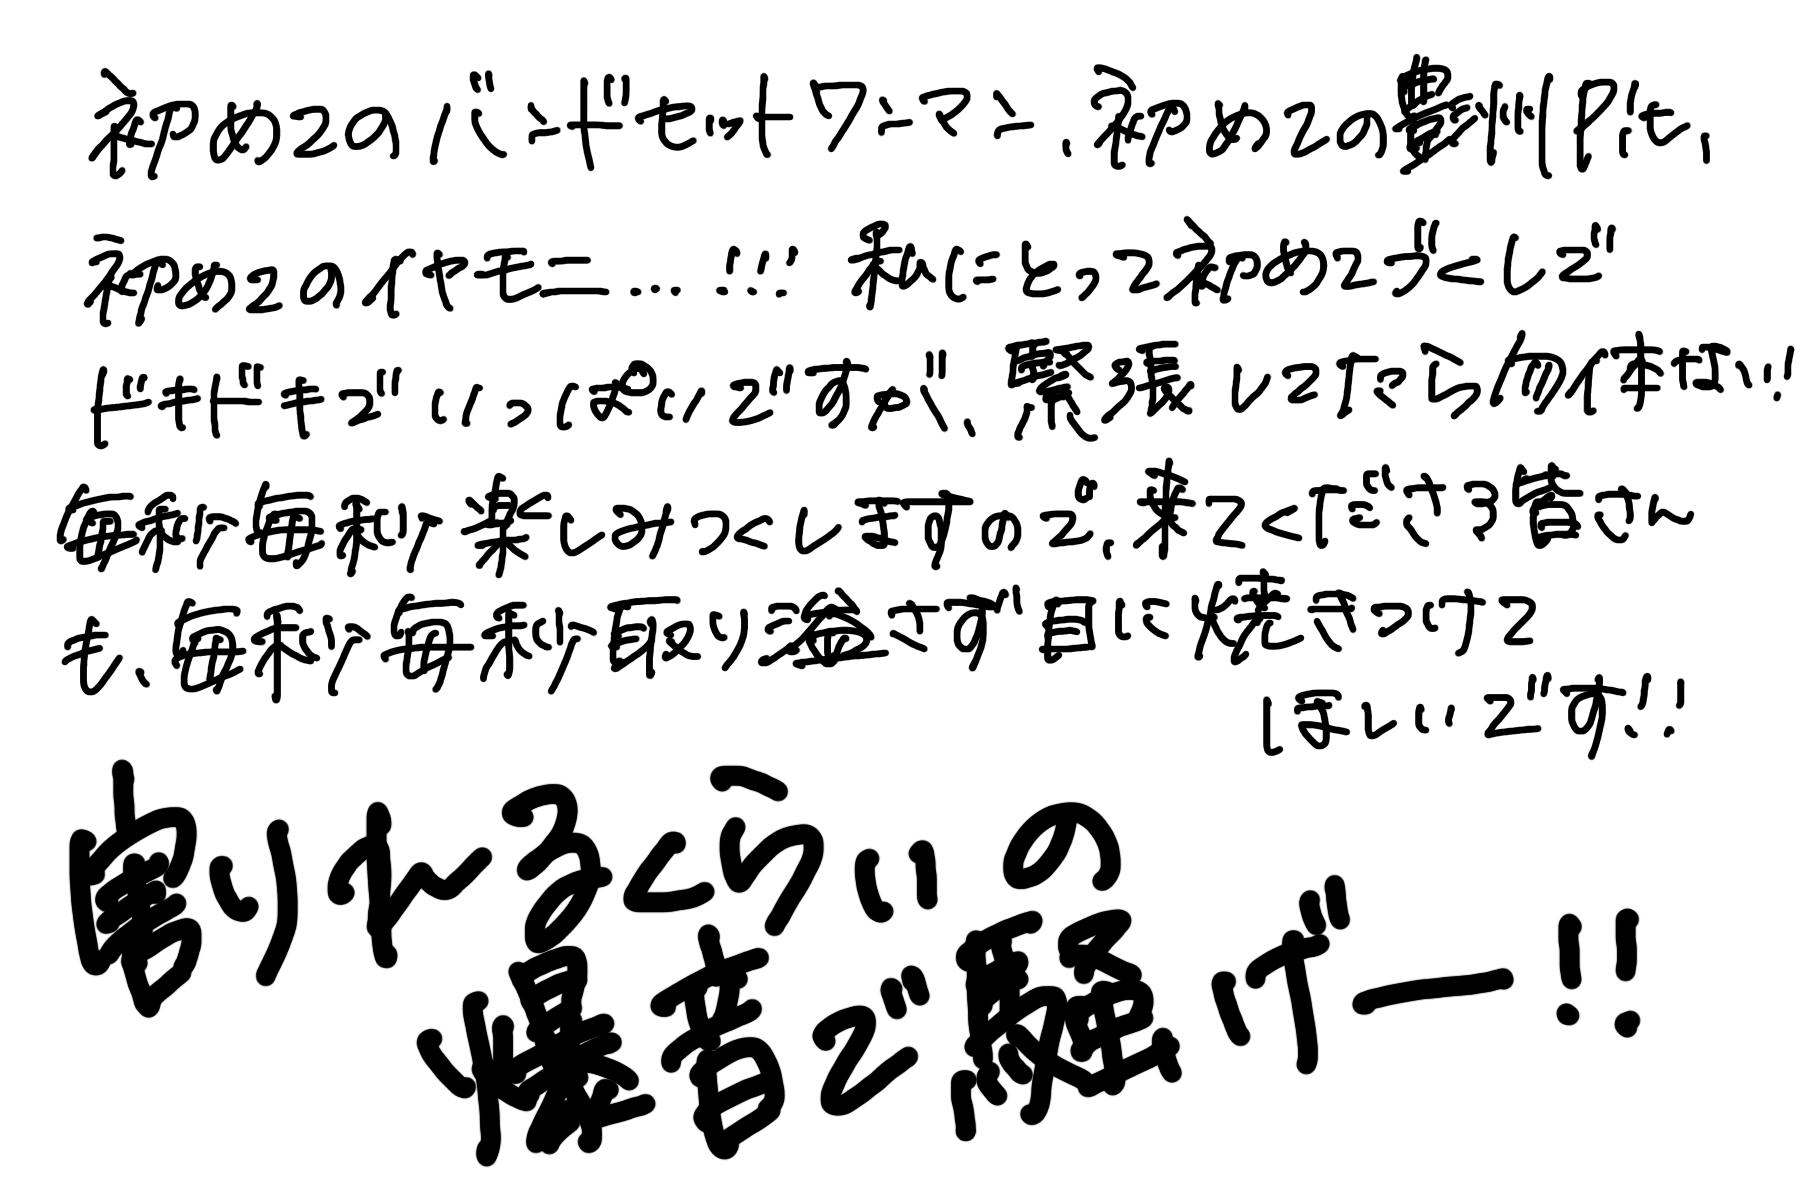 初めてのバンドセットワンマン、初めての豊洲Pit、
初めてのイヤモニ…!!! 私にとって初めてづくしで
ドキドキでいっぱいですが、緊張してたら勿体ない!!
毎秒毎秒楽しみつくしますので、来てくださる皆さん
も、毎秒毎秒取り溢さず目に焼きつけて
ほしいです!!
割れるくらいの
爆音で騒げー!!